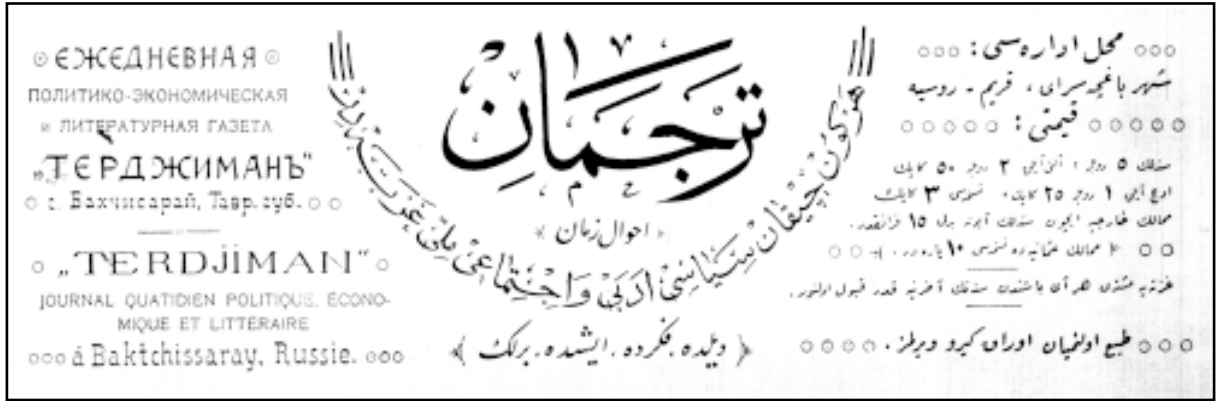 ЕЖЕДНЕВНАЯ
ПОЛИТИКО-ЭКОНОМИЧЕСКАЯ
и ЛИТЕРАТУРНАЯ ГАЗЕТА
„ТЕРДЖИМАНЪ“
г. Бахчисарай, Тавр. губ.
„TERDJİMAN“
JOURNAL QUATIDIEN POLITIQUE, ÉCONO-
MIQUE ET LITTÉRAIRE
á Baktchissaray, Russie.
ترجمان
احوال زمان
هركون چيقان سياسى ادبى و اجتماعى ملى غزته در
﴿ ديلده، فكرده، ايشده، برلك ﴾
محل اداره سى :
شهر باغچه سراى ، قريم - روسيه
قيمتى :
سنه لك ٥ روبل ، آلتى آيلق ٢ روبل ٥٠ كاپك
اوچ آيلق ١ روبل ٢٥ كاپك ، نسخه سى ٣ كاپك
ممالك خارجيه ايچون سنه لك آبونه بدل ١٥ فرانقدر.
ممالك عثمانيه ده نسخه سى ١٠ پاره در.
طبع اولنميان اوراق كيرو ويرلمز.